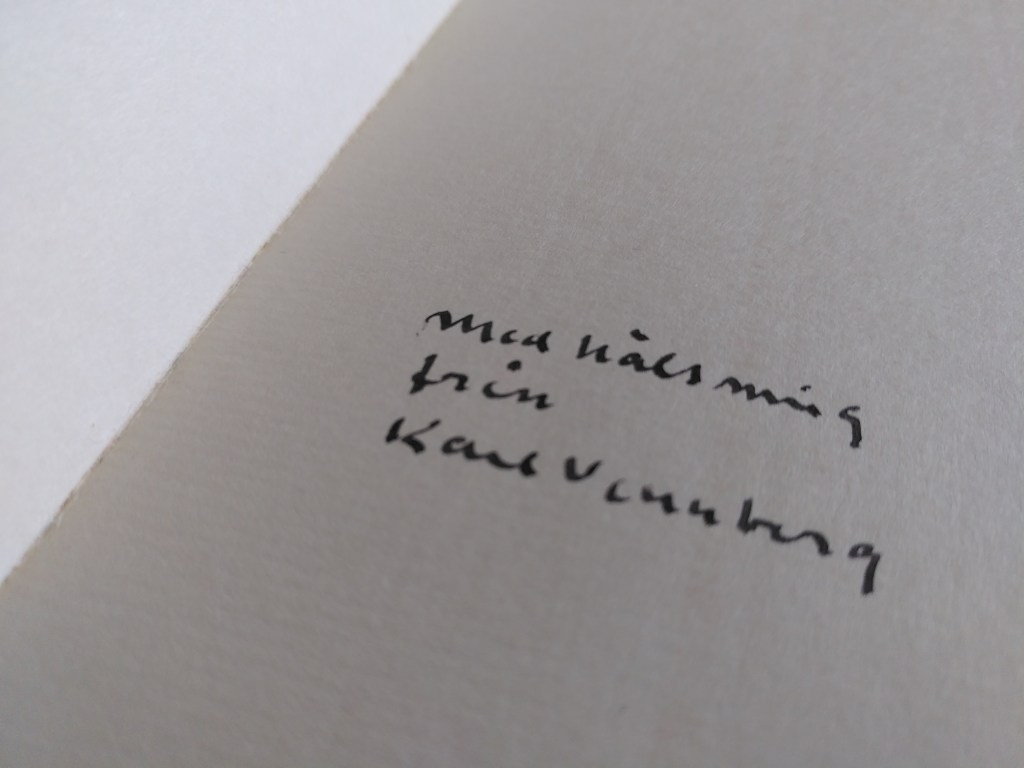 med hälsning
från
Karl Vennberg